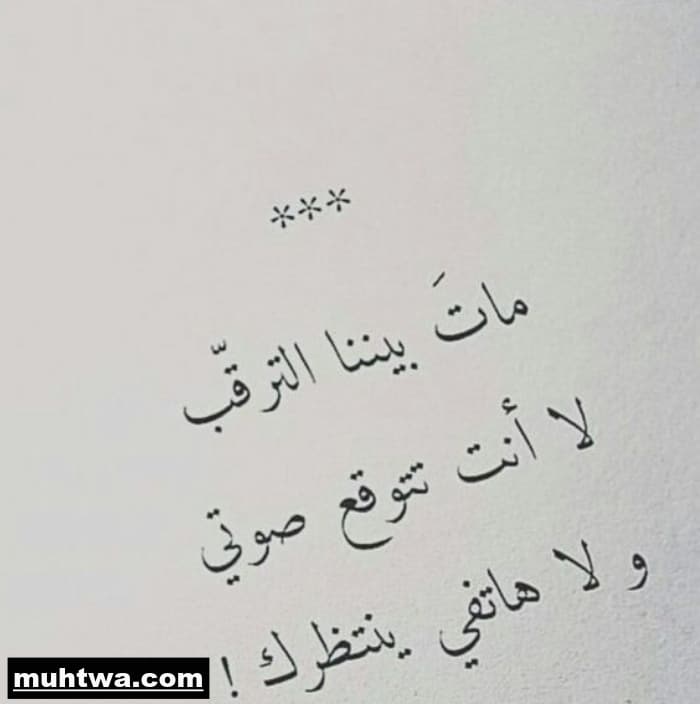 ***
ماتَ بيننا الترقّب
لا أنت تتوقع صوتي
و لا هاتفي ينتظرك !
muhtwa.com